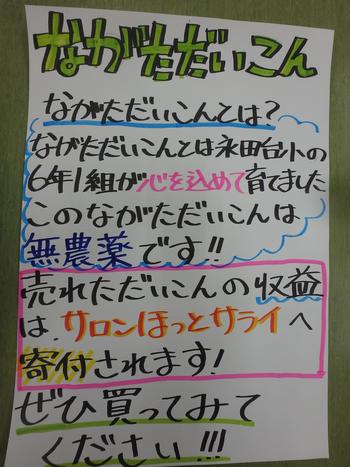 ながただいこん
ながただいこんとは?
ながただいこんとは永田台小の
6年1組が心を込めて育てました
このながただいこんは
無農薬です!!
売れただいこんの収益
は サロンほっとサライへ
寄付されます!
ぜひ買ってみて
ください!!!